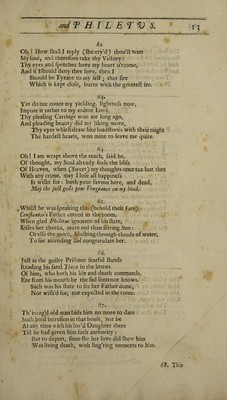 and PHILETUS.
13
62.
Oh! How shall I reply (she cry'd) thou'st won
My soul, and therefore take thy Victory:
Thy eyes and speeches have my heart o'rcome,
And if I should deny thee love, then I
Should be Tyrant to my self; that fire
Which is kept close, burns with the greatest ire.
63.
Yet do not count my yielding, lightness now,
Impute it rather to my ardent Love,
Thy pleasing Carriage won me long ago,
And pleading beauty did my liking move,
Thy eyes which draw like loadstones with their might
The hardest hearts, won mine to leave me quite.
64.
Oh! I am wrapt above the reach, said he,
Of thought, my Soul already feels the bliss
Of Heaven, when (Sweet) my thoughts once tax but thee
With any crime, may I lose all happiness
Is wisht for: both your favour here, and dead,
May the just gods pour Vengeance on my head.
65.
Whilst he was speaking this (behold their Fate)
Constantia's Father entred in the room,
When glad Philetus ignorant of his state,
Kisses her cheeks, more red than setting Sun:
Or else the morn, blushing through clouds of water,
To see ascending Sol congratulate her.
66.
Just as the guilty Prisoner fearful stands
Reading his fatal Theta in the brows
Of him, who both his life and death commands,
Ere from his mouth he the sad sentence knows.
Such was his state to see her Father come,
Nor wish'd for, nor expected in the room.
67.
Th' inrag'd old man bids him no more to dare
Such bold intrusion in that house, nor be
At any time with his lov'd Daughter there
Till he had given him such authority:
But to depart, since she her love did shew him
Was living death, with ling'ring torments to him.
68. This